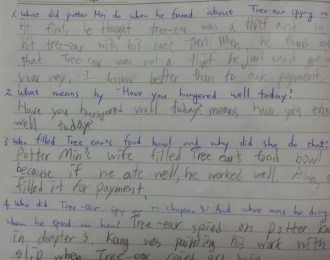 1. what did potter Min do when he found about Tree-ear spying on
At first, he thought tree-ear was a thief and
hit tree-ear with his cane. Then when he found out
that Tree-ear was not a thief he just said get on
your way. I know better than to ask payment.
2. What means by - Have you hungered well today?
Have you hungered well today? means have you eaten
well today?
3. Who filled Tree ear's food bowl and why did she do that?
Potter Min's wife filled Tree ear's food bowl
because if he ate well, he worked well. Also
filled it for payment.
4. Who did Tree-ear spy on in chapter 3? And what was he doing
when he spied on him? Tree-ear spied on potter
in chapter 3. Kang was painting his work with
slip when Tree-ear